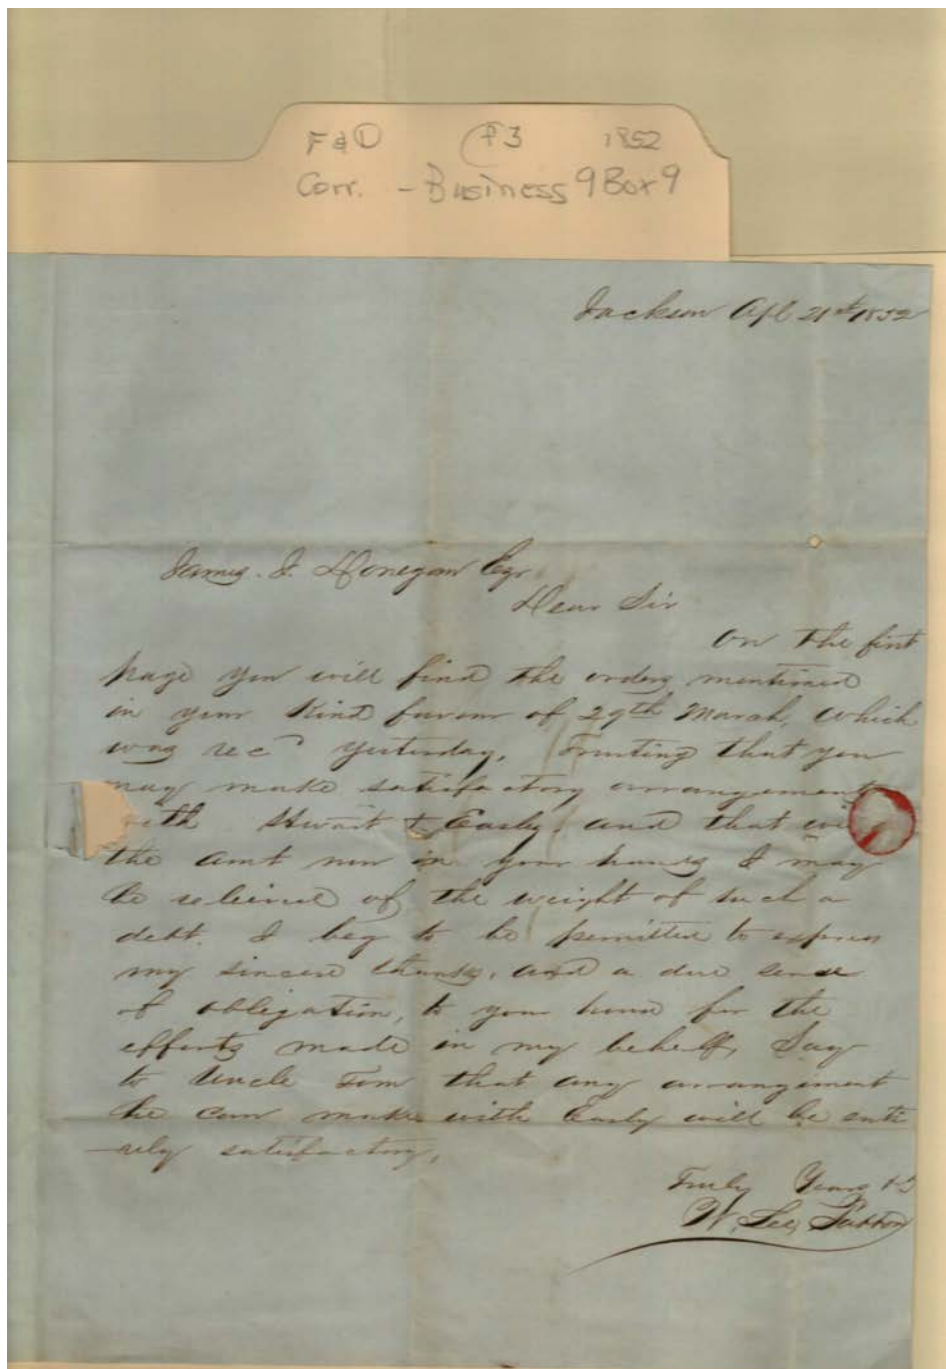 F & D P3 1852
Corr. - Business 9 Box 9
Jackson Apl 21st 1852
James. J. Donegan Eqr
Dear Sir
On the first
page you will find the orders mentioned
in your kind favour of 29th March, which
was recd yesterday, Trusting that you
may make satisfactory arrangements
with & Easly. and that wi
the amt now in your hands I may
be relieved of the weight of such a
debt. I beg to be permitted to express
my sincere thanks, and a due sense
of obligation, to your hand for the
efforts made in my behalf, Say
to Uncle Tom that any arrangement
he can make with Early will be enti
rely satisfactory,
Truly Yours &c
W. Lee, Patton